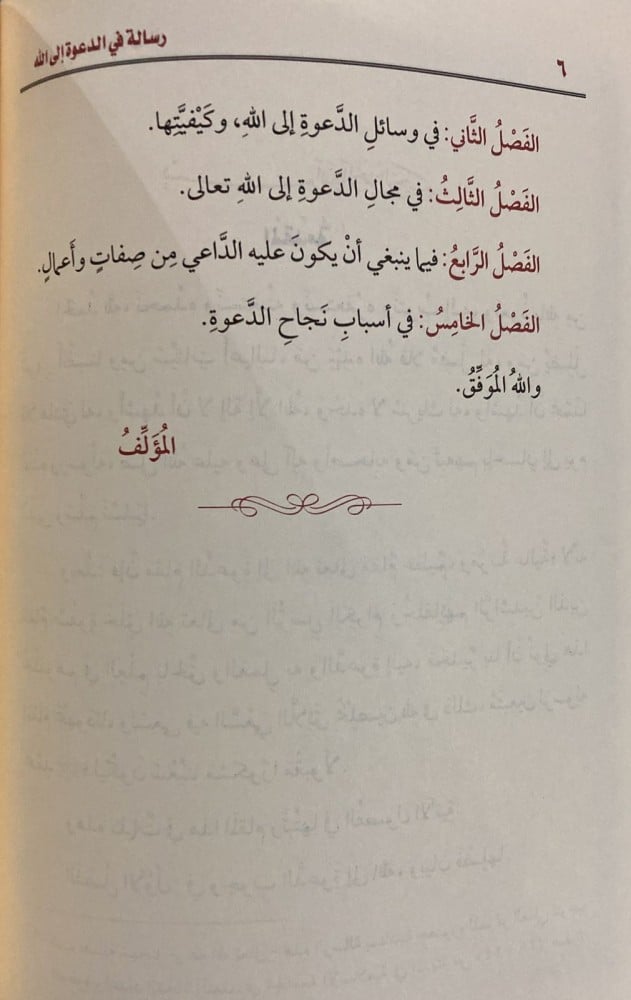 ٦ رسالة في الدعوة إلى الله
الفَصْلُ الثَّاني: في وسائلِ الدَّعوةِ إلى اللهِ، وكَيْفيَّتِها.
الفَصْلُ الثَّالِثُ: في مجالِ الدَّعوةِ إلى اللهِ تعالى.
الفَصْلُ الرَّابعُ: فيما ينبغي أنْ يكونَ عليه الدَّاعي مِن صِفاتٍ وأعمالٍ.
الفَصْلُ الخامِسُ: في أسبابِ نَجاحِ الدَّعوةِ.
واللهُ المُوَفِّقُ.
المُؤَلِّفُ